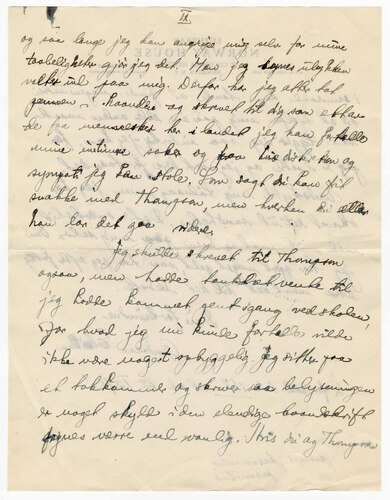 IX
og saa lange jeg kan angripe mig selv for mine
taabeligheter gjør jeg det. Men jeg synes ulykken
velter ind paa mig. Derfor har jeg atter tat
pennen i haanden og skrevet til dig som et av
de faa mennesker her i landet jeg kan fortælle
mine intime saker og paa hvis diskretion og
sympati jeg kan stole. Som sagt du kan frit
snakke med Thompson, men hverken du eller
han lar det gaa videre.
Jeg skulde skrevet til Thompson
ogsaa, men hadde tænkt at vente til
jeg hadde kommet i gang ved skolen,
for hvad jeg nu kunde fortælle vilde
ikke være noget ophyggelig. Jeg sitter paa
et takkammer og skriver saa belysningen
er noget skyld i den elendige haandskrift
synes værre end vanlig. Hvis du og Thompson